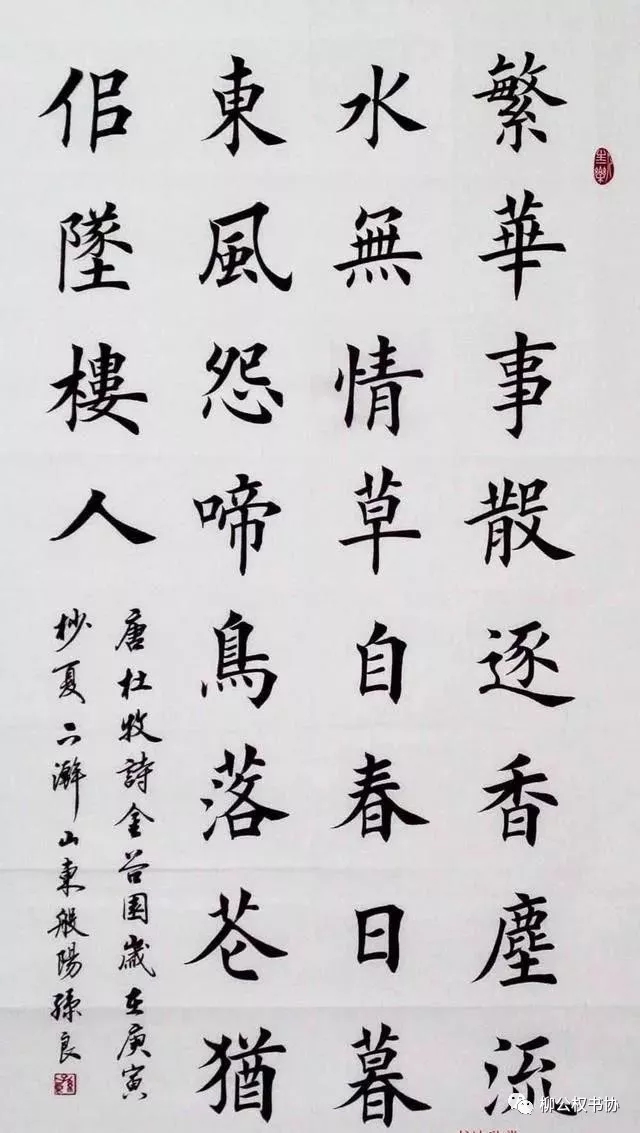 繁華事散逐香塵流
水無情草自春日暮
東風怨啼鳥落花猶
佀墜樓人
唐杜牧詩金谷園歲在庚寅
杪夏下澣山東般陽孫良
柳公权书协